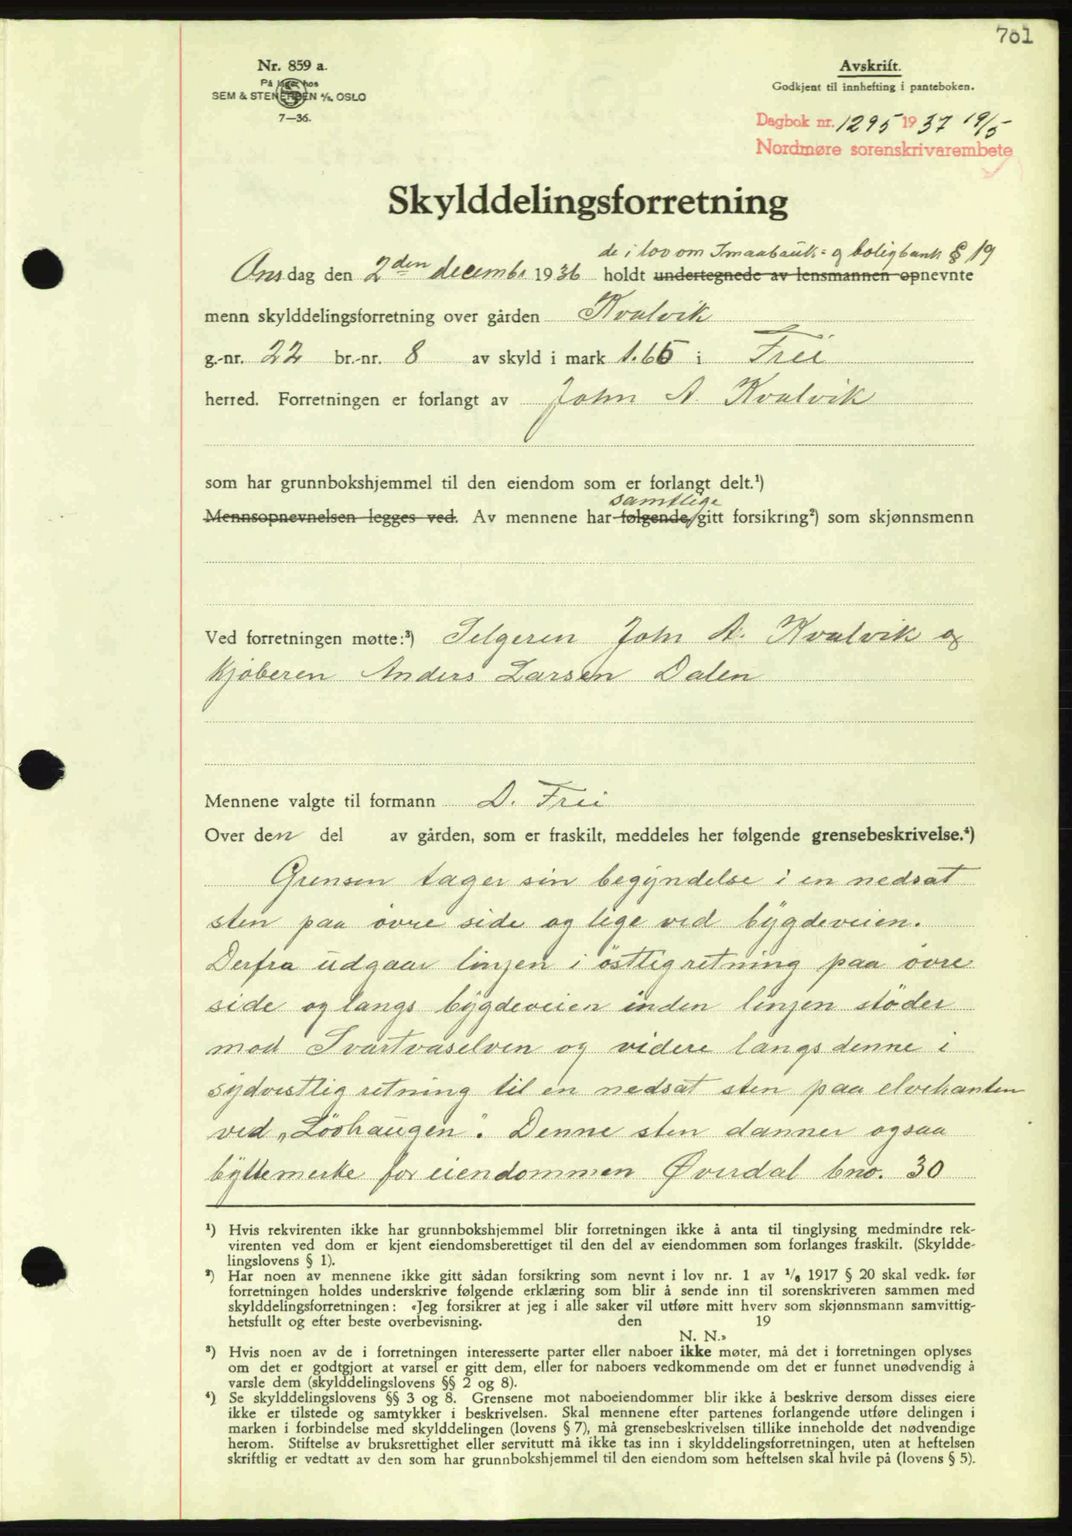 701
Nr. 859 a.
På lager hos
SEM & STENERSEN A/S, OSLO
7—36.
Avskrift.
Godkjent til innhefting i panteboken.
Dagbok nr. 1295 1937 19/5
Nordmøre sorenskrivarembete
Skylddelingsforretning
de i lov om Smaabruk- og boligbank § 19
Onsdag den 2den decembr 1936 holdt undertegnede av lensmannen opnevnte
menn skylddelingsforretning over gården Kvalvik
g.-nr. 22 br.-nr. 8 av skyld i mark 1.65 i Frei
herred. Forretningen er forlangt av John A. Kvalvik
som har grunnbokshjemmel til den eiendom som er forlangt delt.¹)
samtlige
Mennsopnevnelsen legges ved. Av mennene har følgende gitt forsikring²) som skjønnsmenn
Ved forretningen møtte:³) Selgeren John A. Kvalvik og
kjøberen Anders Larsen Dalen
Mennene valgte til formann D. Frei
Over den del av gården, som er fraskilt, meddeles her følgende grensebeskrivelse.⁴)
Grensen tager sin begyndelse i en nedsat
sten paa övre side og lige ved bygdeveien.
Derfra udgaar linjen i östlig retning paa övre
side og langs bygdeveien inden linjen støder
mod Svartvaselven og videre langs denne i
sydvestlig retning til en nedsat sten paa elvekanten
ved „Löohaugen". Denne sten danner ogsaa
byttemerke for eiendommen Øverdal bno. 30
¹) Hvis rekvirenten ikke har grunnbokshjemmel blir forretningen ikke å anta til tinglysing medmindre rek-
virenten ved dom er kjent eiendomsberettiget til den del av eiendommen som forlanges fraskilt. (Skyldde-
lingslovens § 1).
²) Har noen av mennene ikke gitt sådan forsikring som nevnt i lov nr. 1 av 1/6 1917 § 20 skal vedk. før
forretningen holdes underskrive følgende erklæring som blir å sende inn til sorenskriveren sammen med
skylddelingsforretningen: «Jeg forsikrer at jeg i alle saker vil utføre mitt hverv som skjønnsmann samvittig-
hetsfullt og efter beste overbevisning. den 19
N. N.»
³) Hvis noen av de i forretningen interesserte parter eller naboer ikke møter, må det i forretningen oplyses
om det er godtgjort at varsel er gitt dem, eller for naboers vedkommende om det er funnet unødvendig å
varsle dem (skylddelingslovens §§ 2 og 8).
⁴) Se skylddelingslovens §§ 3 og 8. Grensene mot naboeiendommer blir ikke å beskrive dersom disses eiere
ikke er tilstede og samtykker i beskrivelsen. Skal mennene efter partenes forlangende utføre delingen i
marken i forbindelse med skylddelingen (lovens § 7), må grensebeskrivelsen tillike inneholde det nødvendige
herom. Stiftelse av bruksrettighet eller servitutt må ikke tas inn i skylddelingsforretningen, uten at heftelsen
skriftlig er vedtatt av den som har grunnbokshjemmel til den eiendom som heftelsen skal hvile på (lovens § 5).